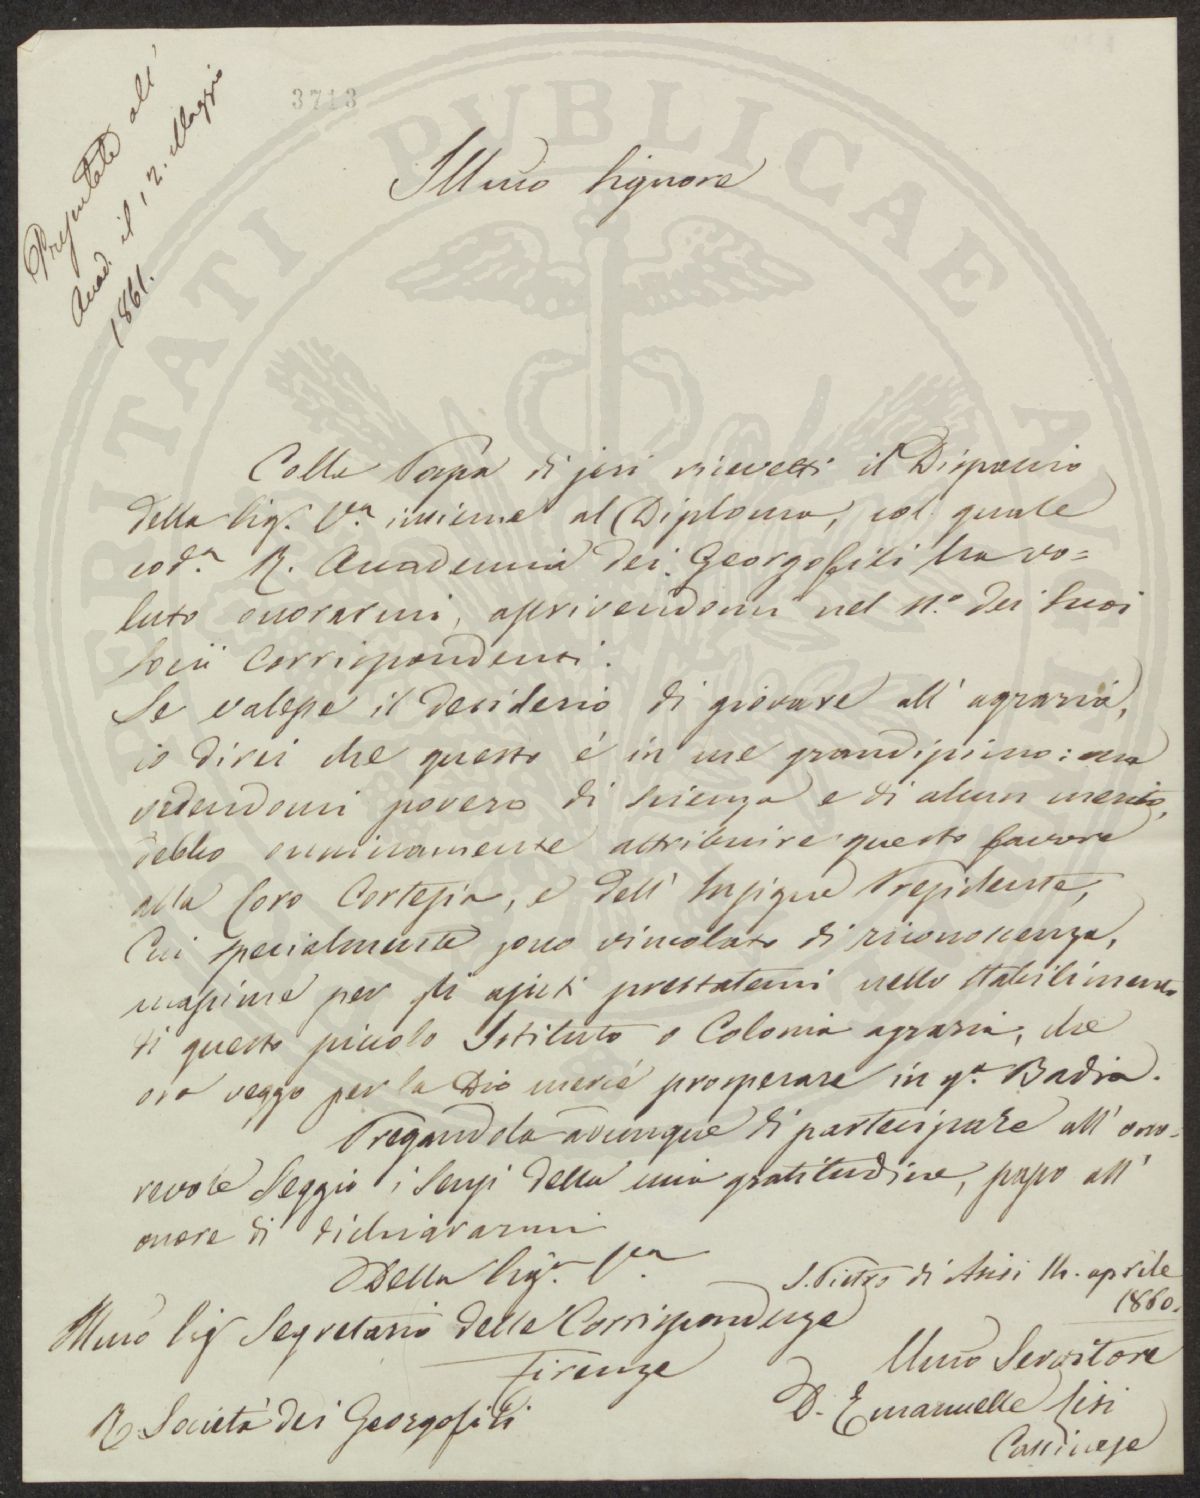 Presentate all'
Accad. il 12. Maggio
1861.
3713
Illmo Signore
Colla Posta di jeri ricevetti il Dispaccio
della Sig.a V.a insieme al Diploma, col quale
cod.a R. Accademia dei Georgofili ha vo=
luto onorarmi, ascrivendomi nel N.o dei Suoi
Socii Corrispondenti.
Se valesse il desiderio di giovare all' agraria,
io direi che questo é in me grandissimo: ma
vedendomi povero di scienza e di alcun merito,
debbo onninamente attribuire questo favore
alla loro Cortesia, e dell' Insigne Presidente,
Cui specialmente sono vincolato di riconoscenza,
massime per gli ajuti prestatemi nello Stabilimento
di questo piccolo Istituto o Colonia agraria, che
ora veggo per la Dio mercé prosperare in q.a Badia.
Pregandola adunque di partecipare all' ono-
revole Seggio i Sensi della mia gratitudine, passo all'
onore di dichiararmi
Della Sig.a V.a
S. Pietro di Assisi 14. aprile
1860.
Illmo Sig Segretario delle Corrispondenze
Firenze
R Società dei Georgofili
Umo Servitore
D. Emanuelle Lisi
Cassinese
PERITATI PUBLICAE